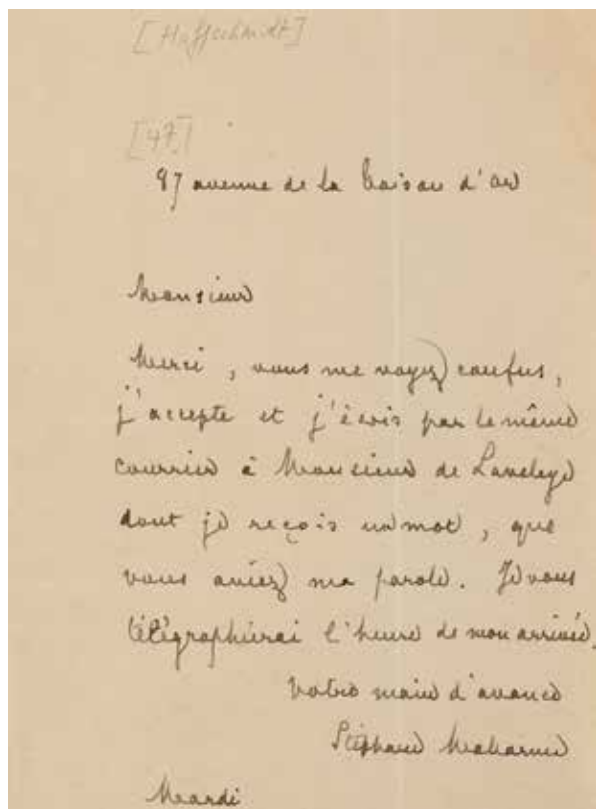 [Hoffschmidt]
[47.]
97 avenue de la Toison d'or
Monsieur
Merci, vous me voyez confus,
j'accepte et j'écris par le même
courrier à Monsieur de Laveleye
dont je reçois un mot, que
vous aviez ma parole. Je vous
télégraphierai l'heure de mon arrivée.
Votre main d'avance
Stéphane Mallarmé
Mardi